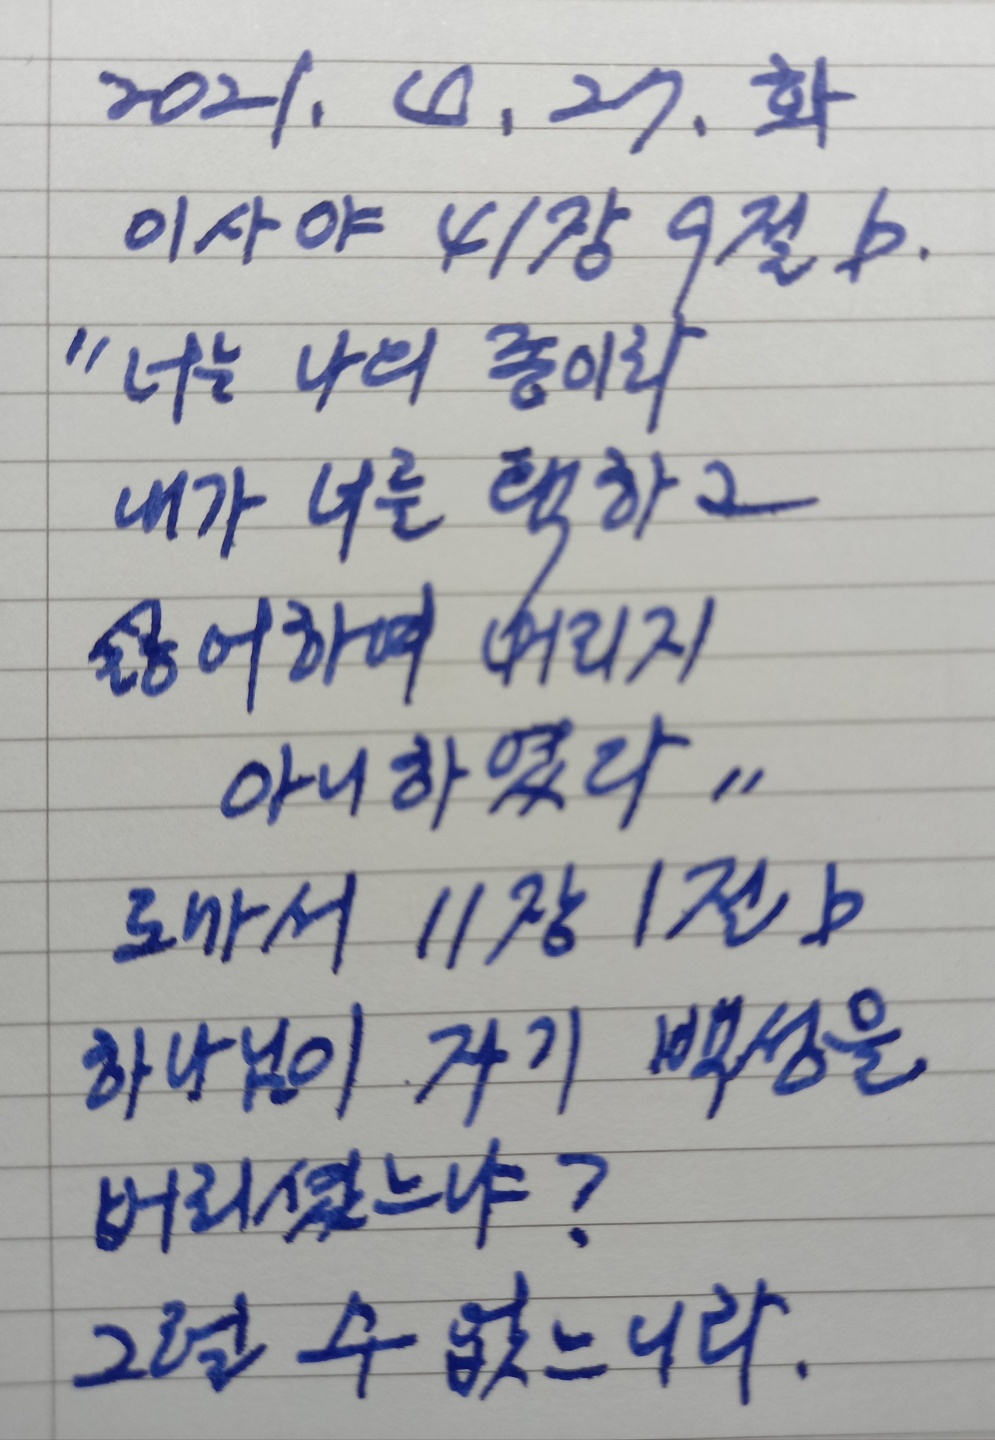 2021. 4. 27. 화
이사야 41장 9절 b.
"너는 나의 종이라
내가 너를 택하고
싫어하여 버리지
아니하였다"
로마서 11장 1절 b
하나님이 자기 백성을
버리셨느냐?
그럴 수 없느니라.